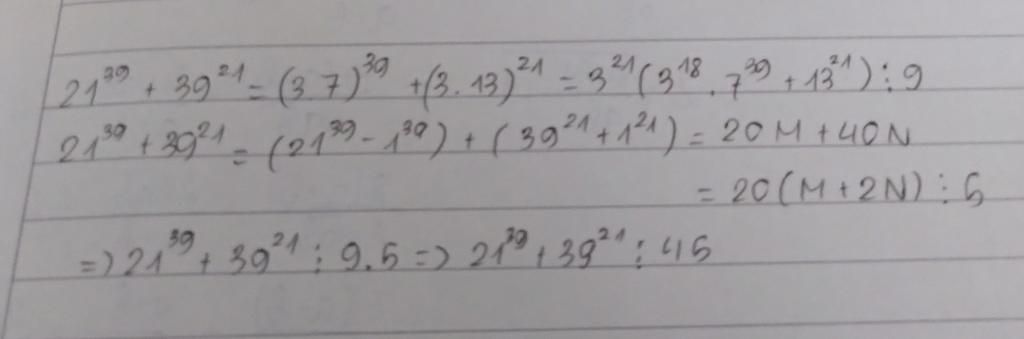 21³⁹ + 39²¹ = (3.7)³⁹ + (3.13)²¹ = 3²¹(3¹⁸.7³⁹ + 13²¹) ⋮ 9
21³⁹ + 39²¹ = (21³⁹ - 1³⁹) + (39²¹ + 1²¹) = 20M + 40N
= 20(M + 2N) ⋮ 5
=> 21³⁹ + 39²¹ ⋮ 9.5 => 21³⁹ + 39²¹ ⋮ 45